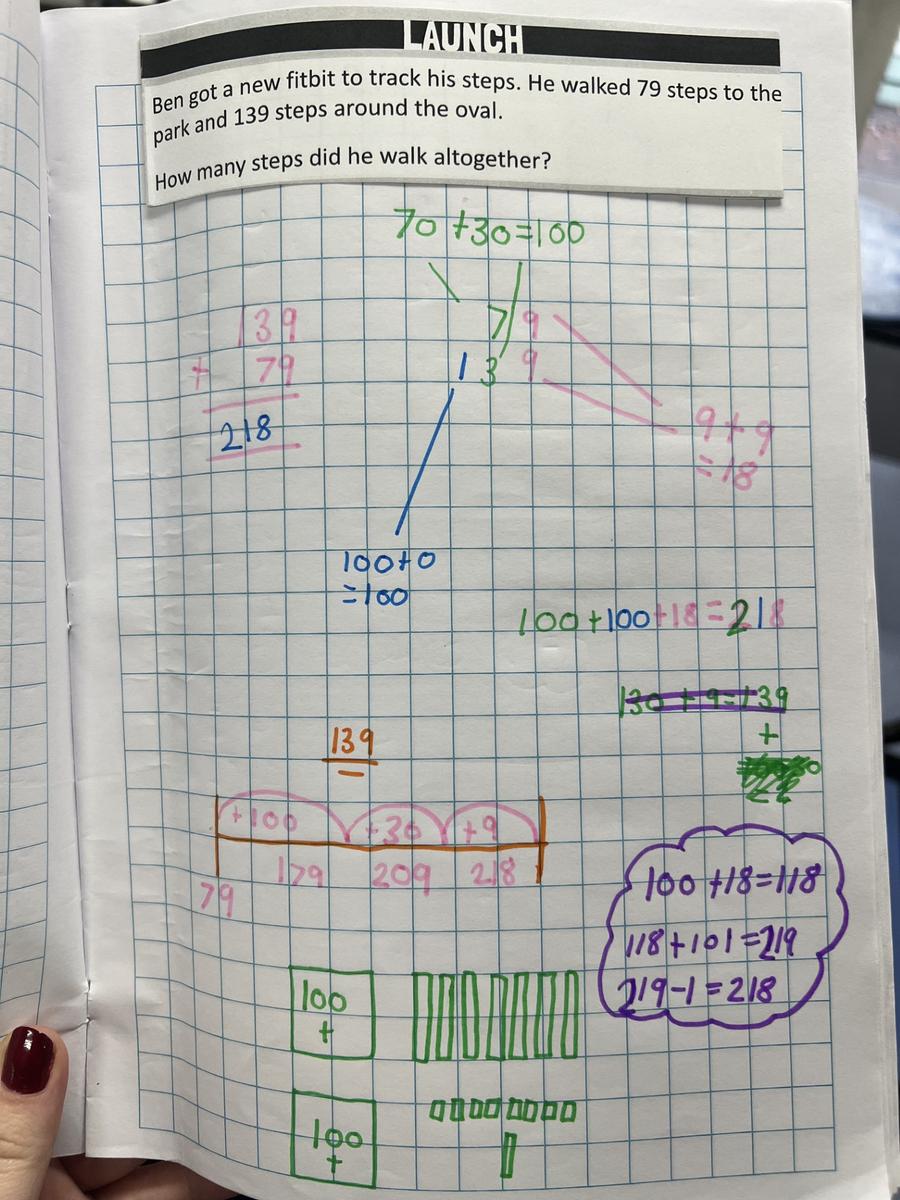 LAUNCH
Ben got a new fitbit to track his steps. He walked 79 steps to the
park and 139 steps around the oval.
How many steps did he walk altogether?
70 + 30 = 100
139
+ 79
218
79
139
9 + 9
= 18
100 + 0
= 100
100 + 100 + 18 = 218
130 + 9 = 139
+
139
+100 +30 +9
79 179 209 218
100 + 18 = 118
118 + 101 = 219
219 - 1 = 218
100
+
100
+